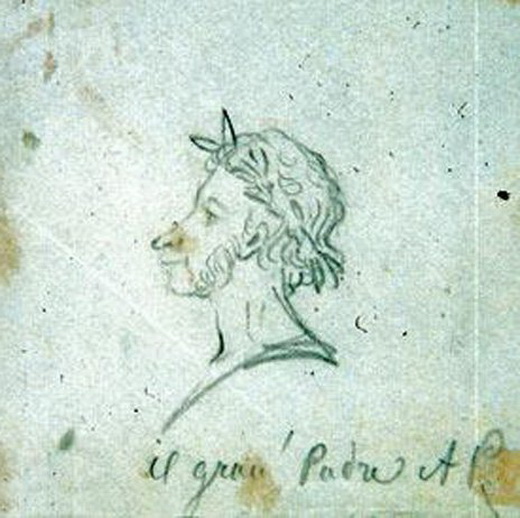 il gran' Padre AP